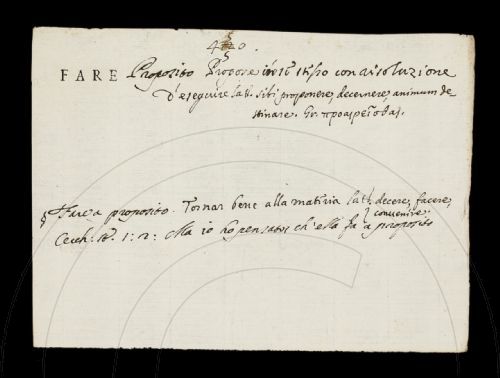 420.
FARE Proposito Propore in se stesso con risoluzione
d'eseguire lat. sibi proponere, decernere, animum de-
stinare. Gr. προαιρεῖσθαι.
§ Fare a proposito. Tornar bene alla materia lat. decere, facere,
convenire.
Cecch. 1: 2: Ma io ho pensato ch'ella fa a proposito